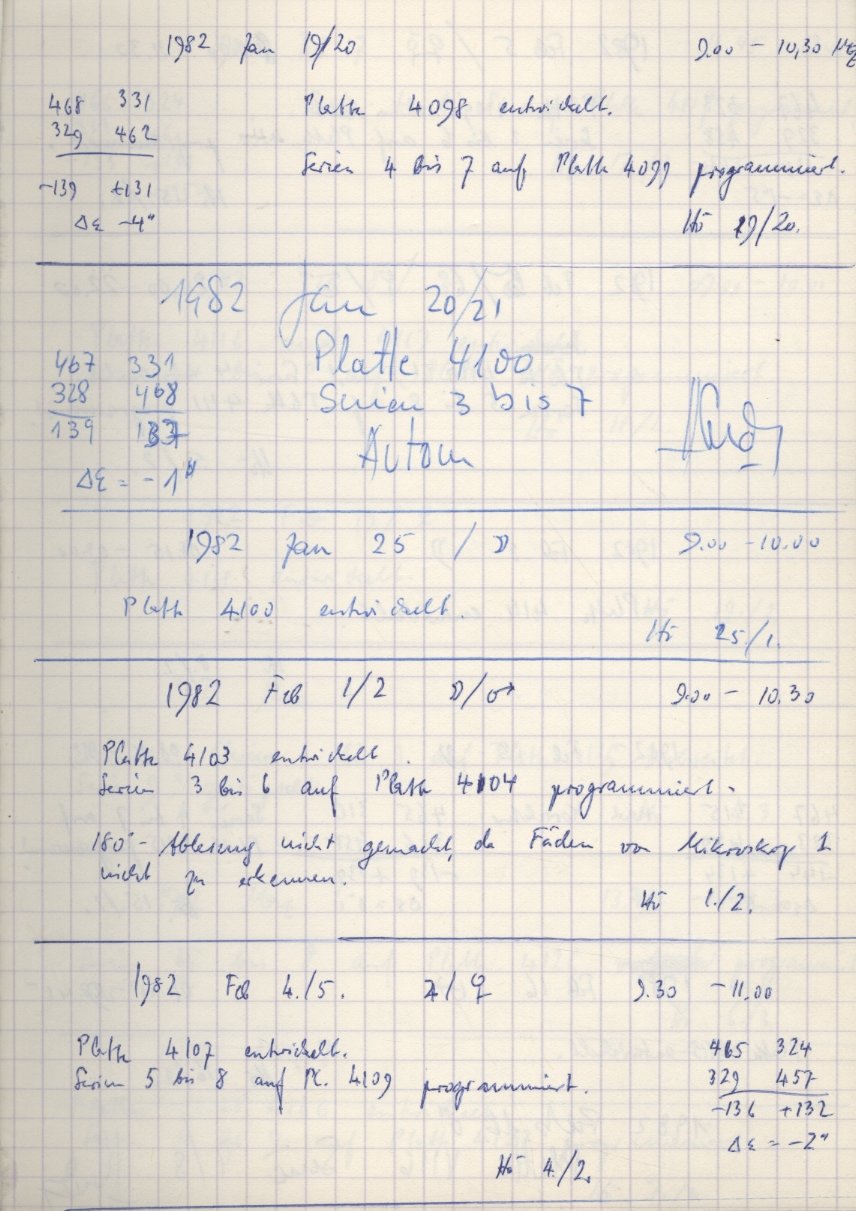 1982 Jan 19/20 9.00 - 10,30 MEZ
468 331 Platte 4098 entwickelt.
329 462
Serien 4 bis 7 auf Platte 4099 programmiert.
-139 +131
Δε -4" Hö 19/20.
1982 Jan 20/21
467 331 Platte 4100
328 468 Serien 3 bis 7
139 137 Autom
Δε = -1"
1982 Jan 25 / ☽ 9.00 - 10.00
Platte 4100 entwickelt.
Hö 25/1.
1982 Feb 1/2 ☽/♂ 9.00 - 10.30
Platte 4103 entwickelt.
Serien 3 bis 6 auf Platte 4104 programmiert.
180°-Ablesung nicht gemacht, da Fäden von Mikroskop 1
nicht zu erkennen.
Hö 1./2.
1982 Feb 4./5. ♃/♀ 9.30 - 11.00
Platte 4107 entwickelt. 465 324
Serien 5 bis 8 auf Pl. 4109 programmiert. 329 457
-136 +132
Δε = -2"
Hö 4./2.